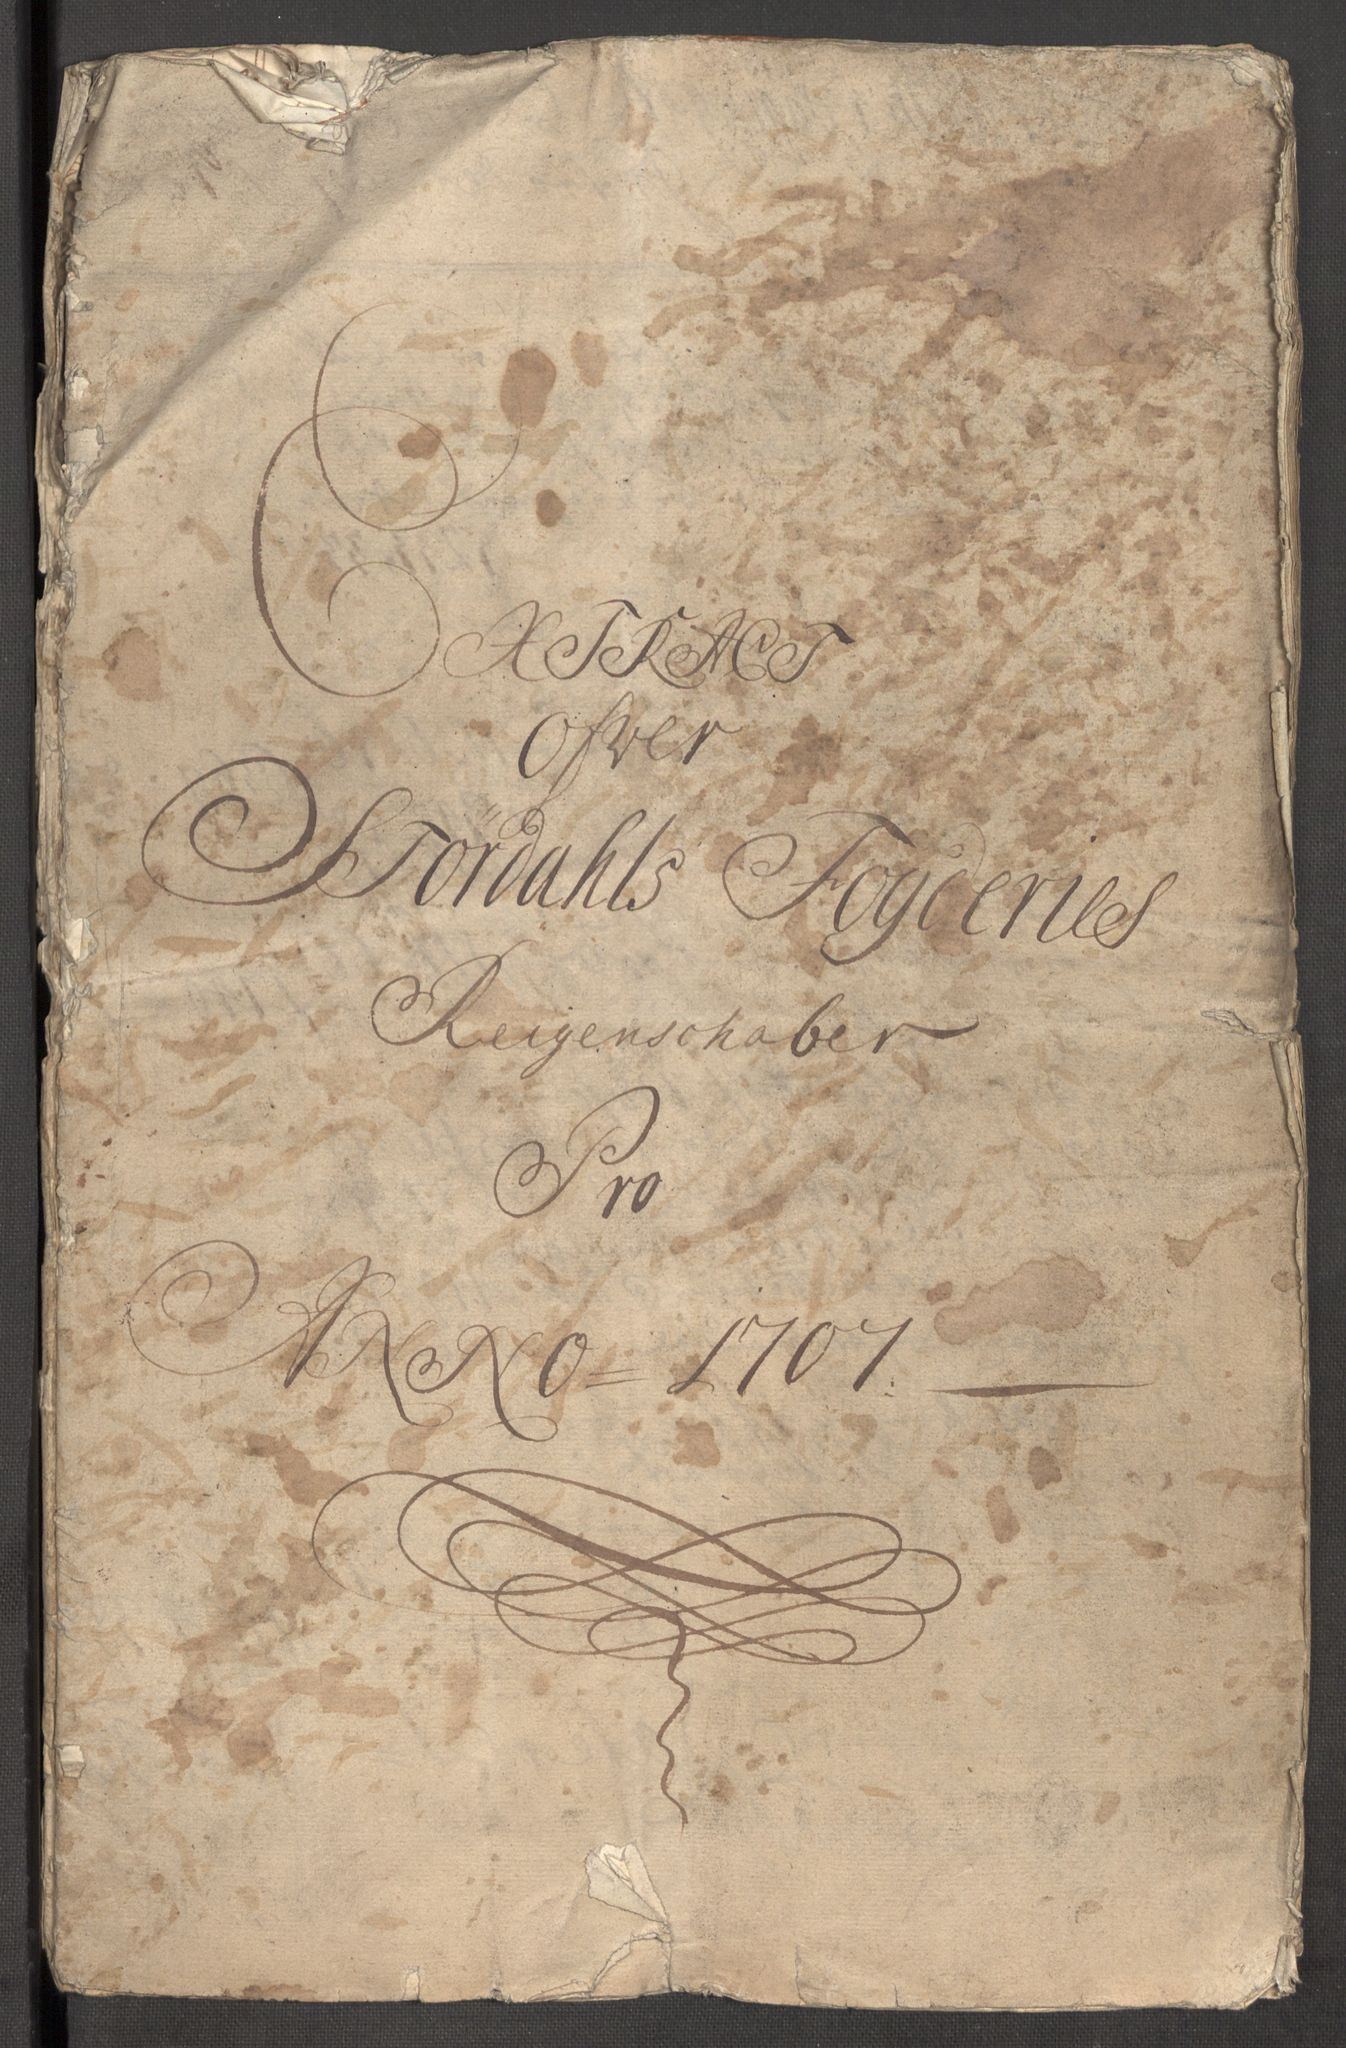 EXTRACT
Ofver
Stördahls Fogderies
Reigenschaber
Pro
ANNO = 1707